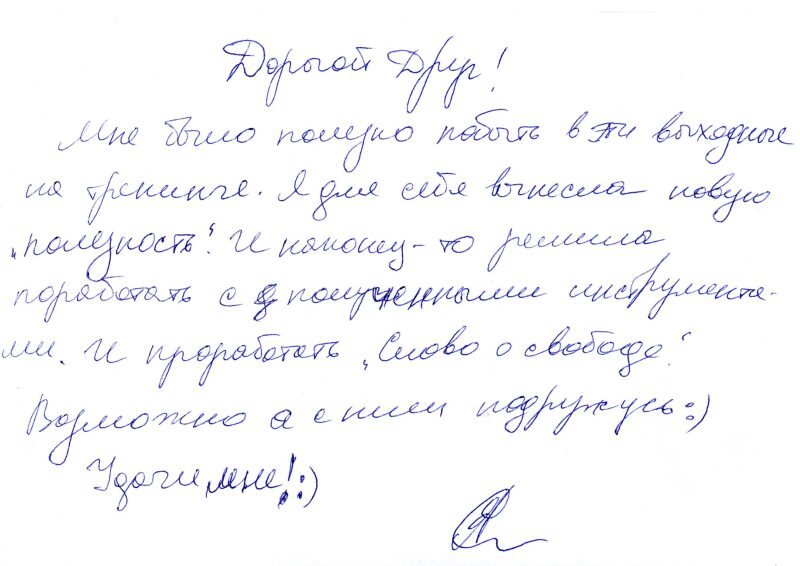 Дорогой Друг!
Мне было полезно побыть в эти выходные
на тренинге. Я для себя вынесла новую
„полезность". И наконец-то решила
поработать с полученными инструмента-
ми. И проработать „Слово о свободе".
Возможно я с ним подружусь :)
Удачи мне! :)